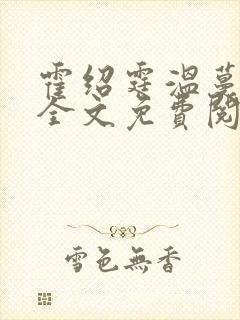 霍绍霆温蔓
全文免費閱
雪色無香